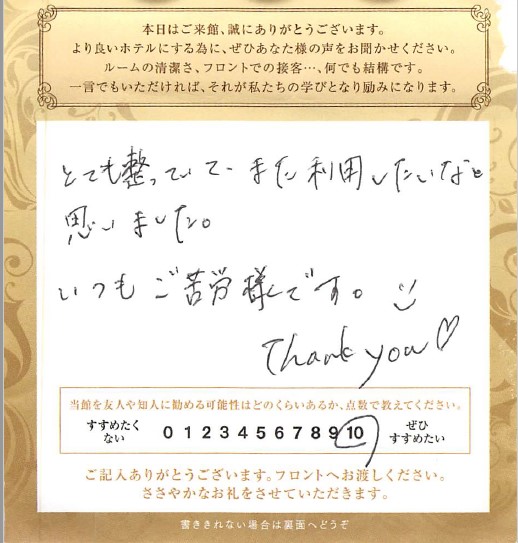 本日はご来館、誠にありがとうございます。
より良いホテルにする為に、ぜひあなた様の声をお聞かせください。
ルームの清潔さ、フロントでの接客…、何でも結構です。
一言でもいただければ、それが私たちの学びとなり励みになります。
とても整っていて、また利用したいなと
思いました。
いつもご苦労様です。
Thank you
当館を友人や知人に勧める可能性はどのくらいあるか、点数で教えてください。
すすめたくない 0 1 2 3 4 5 6 7 8 9 10 ぜひすすめたい
ご記入ありがとうございます。フロントへお渡しください。
ささやかなお礼をさせていただきます。
書ききれない場合は裏面へどうぞ